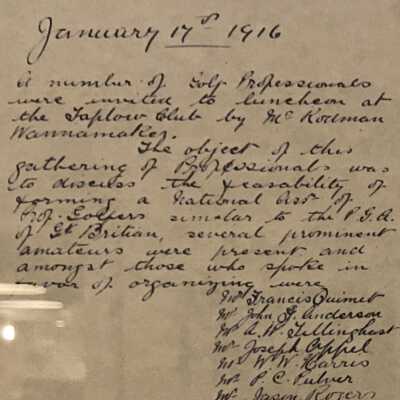 January 17th 1916
A number of Golf Professionals
were invited to luncheon at
the Taplow Club by Mr Rodman
Wannamaker.
The object of this
gathering of Professionals was
to discuss the feasability of
forming a National Assn of
Prof. Golfers similar to the P.G.A.
of Gt Britian, several prominent
amateurs were present and
amongst those who spoke in
favor of organizing were
Mr Francis Ouimet
Mr John G. Anderson
Mr A. W. Tillinghast
Mr Joseph Appel
Mr W. W. Harris
Mr P. C. Pulver
Mr Jason Rogers